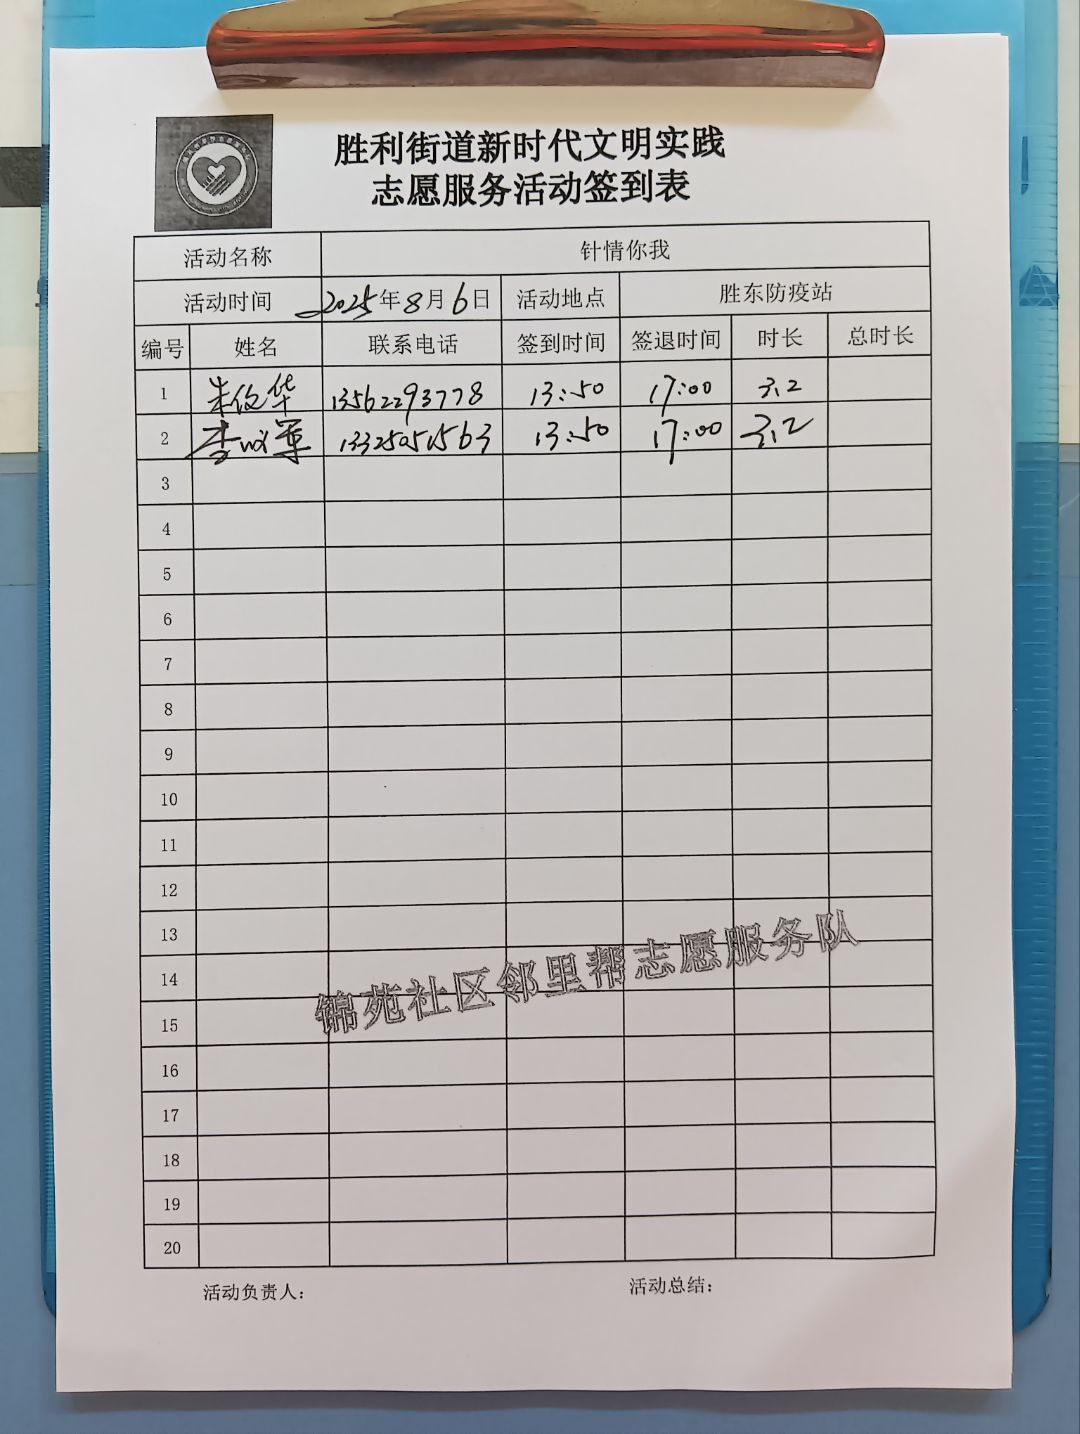 胜利街道新时代文明实践
志愿服务活动签到表
活动名称 针情你我
活动时间 2025年8月6日 活动地点 胜东防疫站
编号 姓名 联系电话 签到时间 签退时间 时长 总时长
1 朱俊华 13562293778 13:50 17:00 3.2
2 李 军 13325051563 13:50 17:00 3.2
3
4
5
6
7
8
9
10
11
12
13
14
锦苑社区邻里帮志愿服务队
15
16
17
18
19
20
活动负责人: 活动总结: